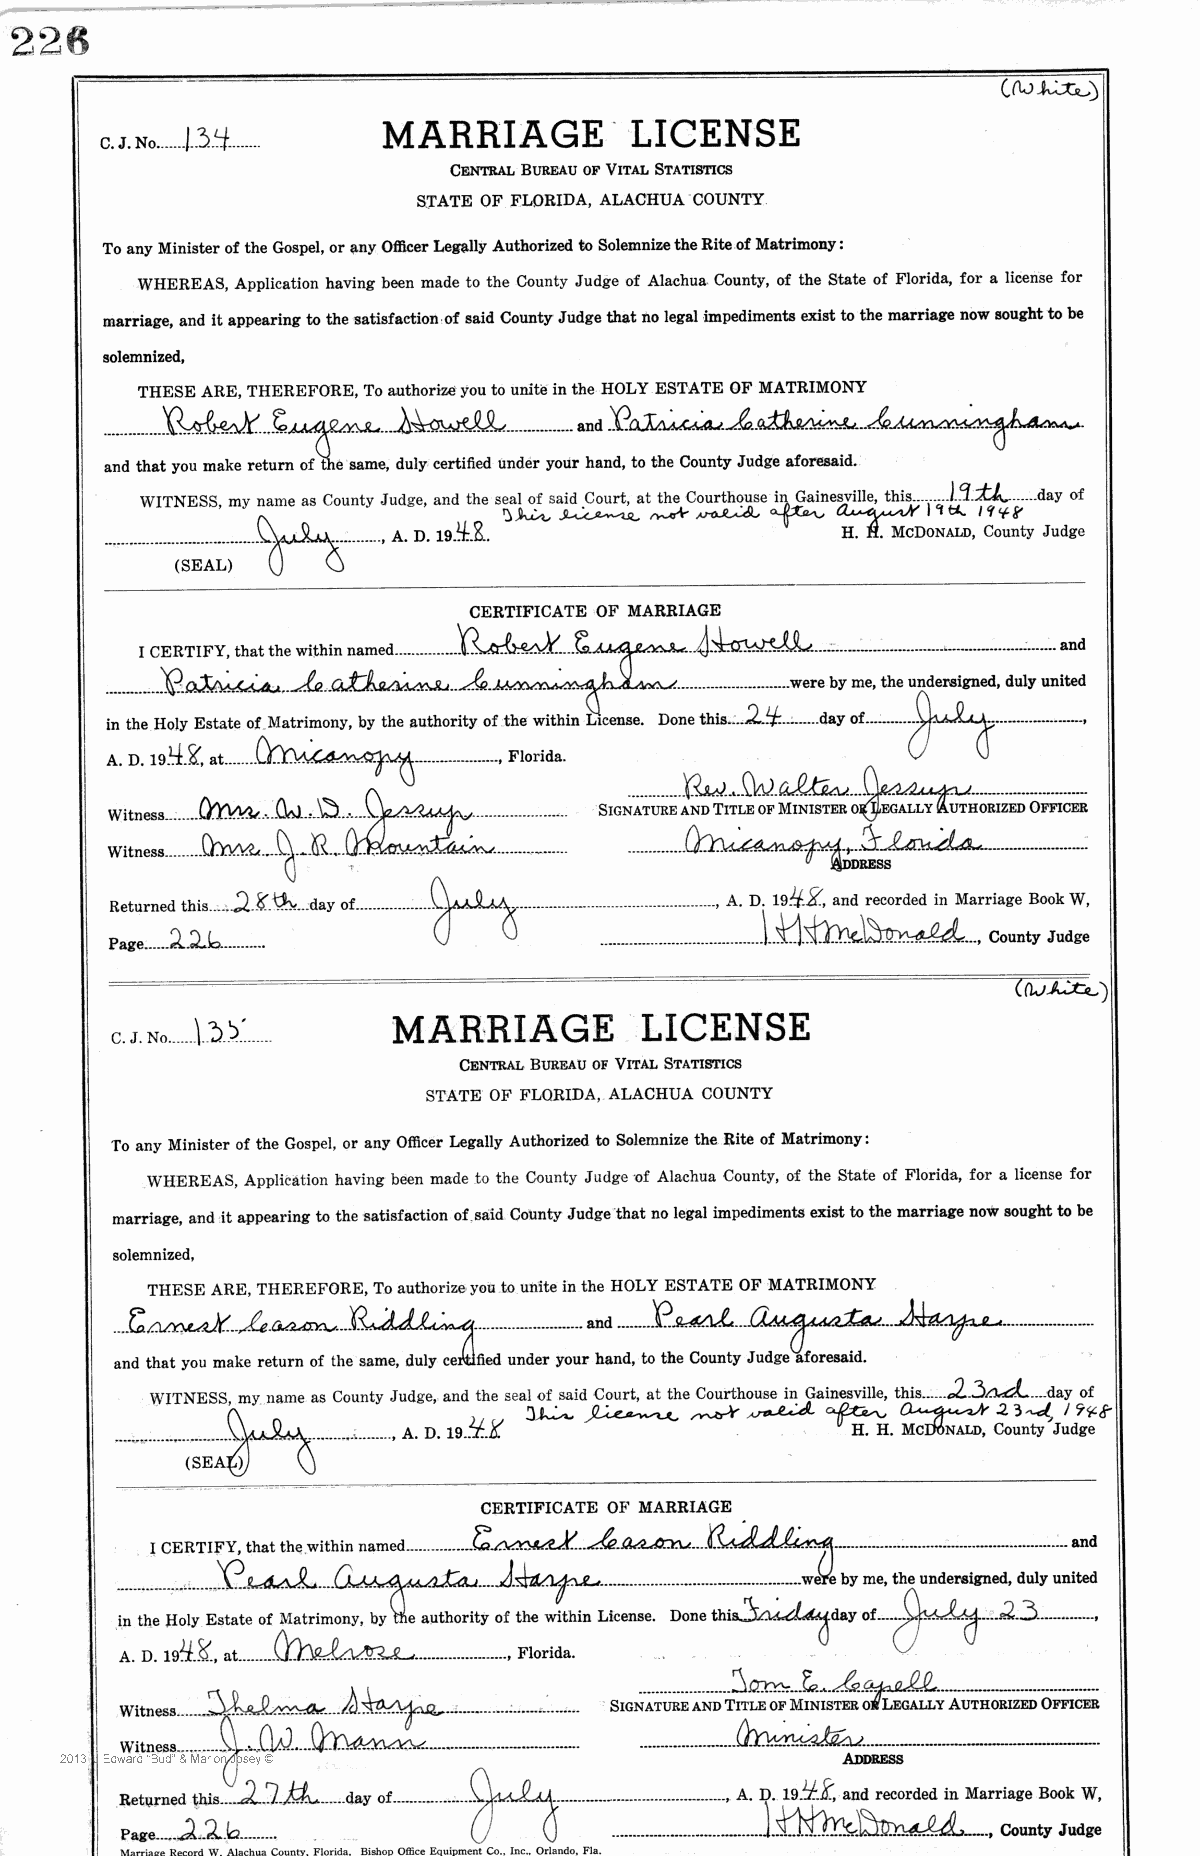 226
(White)
C. J. No. 134 MARRIAGE LICENSE
CENTRAL BUREAU OF VITAL STATISTICS
STATE OF FLORIDA, ALACHUA COUNTY
To any Minister of the Gospel, or any Officer Legally Authorized to Solemnize the Rite of Matrimony:
WHEREAS, Application having been made to the County Judge of Alachua County, of the State of Florida, for a license for
marriage, and it appearing to the satisfaction of said County Judge that no legal impediments exist to the marriage now sought to be
solemnized,
THESE ARE, THEREFORE, To authorize you to unite in the HOLY ESTATE OF MATRIMONY
Robert Eugene Howell and Patricia Catherine Cunningham
and that you make return of the same, duly certified under your hand, to the County Judge aforesaid.
WITNESS, my name as County Judge, and the seal of said Court, at the Courthouse in Gainesville, this 19th day of
This license not valid after August 19th 1948
July, A. D. 1948. H. H. McDONALD, County Judge
(SEAL)
CERTIFICATE OF MARRIAGE
I CERTIFY, that the within named Robert Eugene Howell and
Patricia Catherine Cunningham were by me, the undersigned, duly united
in the Holy Estate of Matrimony, by the authority of the within License. Done this 24 day of July,
A. D. 1948, at Micanopy, Florida.
Rev. Walter Jessup
Witness Mrs. W. D. Jessup SIGNATURE AND TITLE OF MINISTER OR LEGALLY AUTHORIZED OFFICER
Witness Mrs J. R. Mountain Micanopy, Florida
ADDRESS
Returned this 28th day of July, A. D. 1948, and recorded in Marriage Book W,
Page 226 H H McDonald, County Judge
(White)
C. J. No. 135 MARRIAGE LICENSE
CENTRAL BUREAU OF VITAL STATISTICS
STATE OF FLORIDA, ALACHUA COUNTY
To any Minister of the Gospel, or any Officer Legally Authorized to Solemnize the Rite of Matrimony:
WHEREAS, Application having been made to the County Judge of Alachua County, of the State of Florida, for a license for
marriage, and it appearing to the satisfaction of said County Judge that no legal impediments exist to the marriage now sought to be
solemnized,
THESE ARE, THEREFORE, To authorize you to unite in the HOLY ESTATE OF MATRIMONY
Ernest Cason Riddling and Pearl Augusta Harpe
and that you make return of the same, duly certified under your hand, to the County Judge aforesaid.
WITNESS, my name as County Judge, and the seal of said Court, at the Courthouse in Gainesville, this 23rd day of
This license not valid after August 23rd, 1948
July, A. D. 1948 H. H. McDONALD, County Judge
(SEAL)
CERTIFICATE OF MARRIAGE
I CERTIFY, that the within named Ernest Cason Riddling and
Pearl Augusta Harpe were by me, the undersigned, duly united
in the Holy Estate of Matrimony, by the authority of the within License. Done this Friday day of July 23,
A. D. 1948, at Melrose, Florida.
Tom E. Capell
Witness Thelma Harpe SIGNATURE AND TITLE OF MINISTER OR LEGALLY AUTHORIZED OFFICER
Witness J. W. Mann Minister
2013 Edward "Bud" & Marion Josey © ADDRESS
Returned this 27th day of July, A. D. 1948, and recorded in Marriage Book W,
Page 226 H H McDonald, County Judge
Marriage Record W, Alachua County, Florida. Bishop Office Equipment Co., Inc., Orlando, Fla.